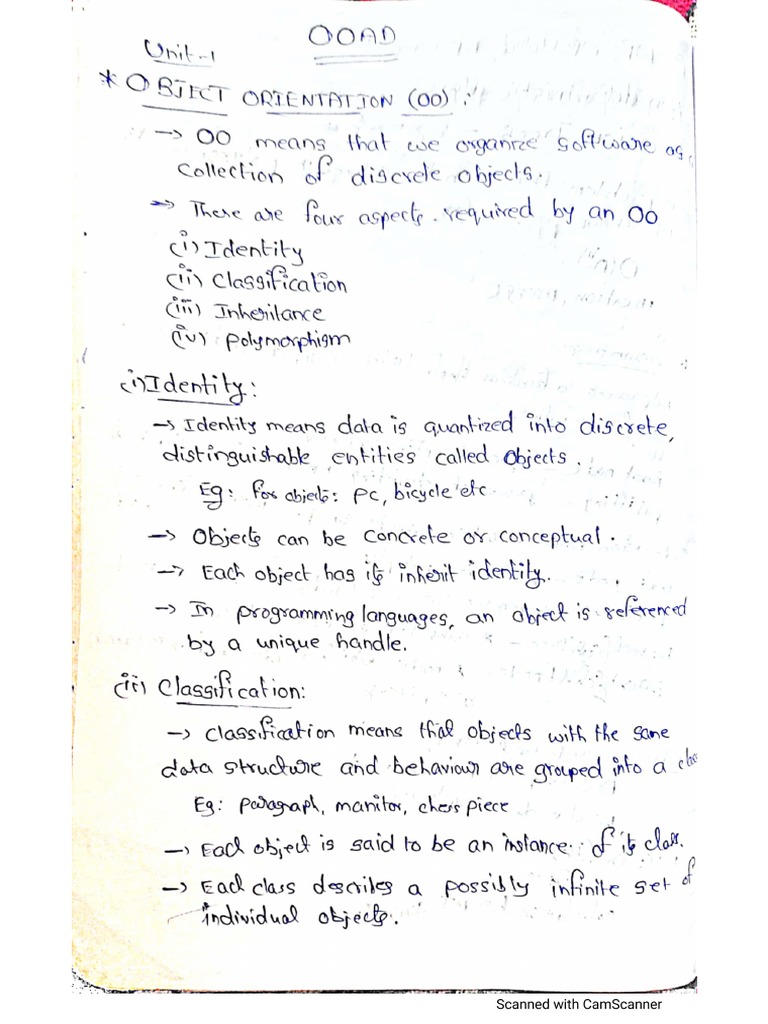 OOAD
Unit-1
* OBJECT ORIENTATION (OO):
→ OO means that we organize software as
collection of discrete objects.
→ There are four aspects required by an OO
(i) Identity
(ii) Classification
(iii) Inheritance
(iv) polymorphism
(i) Identity:
→ Identity means data is quantized into discrete,
distinguishable entities called objects.
Eg: for objects: pc, bicycle etc
→ Objects can be concrete or conceptual.
→ Each object has its inherit identity.
→ In programming languages, an object is referenced
by a unique handle.
(ii) Classification:
→ classification means that objects with the same
data structure and behaviour are grouped into a
Eg: paragraph, manitor, chess piece
→ Each object is said to be an instance of its class.
→ Each class describes a possibly infinite set of
individual objects.
Scanned with CamScanner